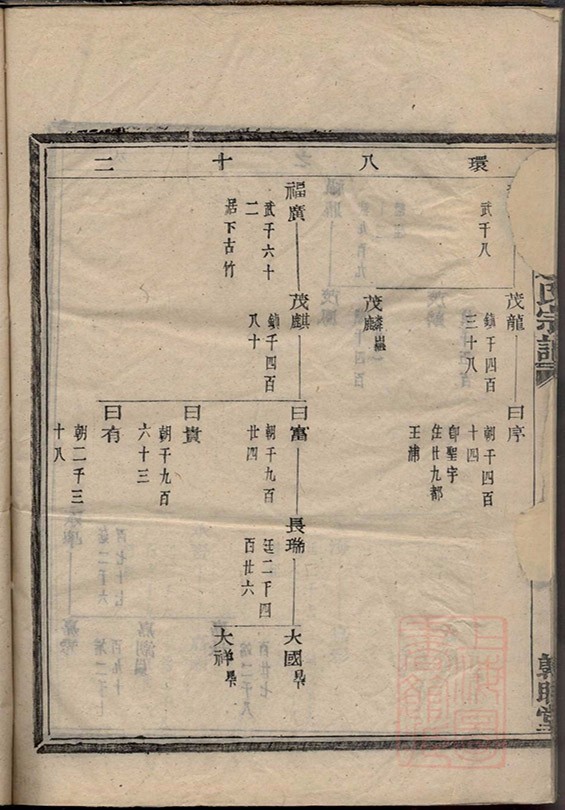 氏宗譜
環八十二
武千八
茂龍
鎮千四百
三十八
曰序
朝千四百
十四
郎聖宇
住廿九都
王浦
茂麟
福廣
武千六十
二
居下古竹
茂麒
鎮千四百
八十
曰富
朝千九百
廿四
長瑞
廷二千四
百廿六
大國
大祥
曰貴
朝千九百
六十三
曰有
朝二千三
十八